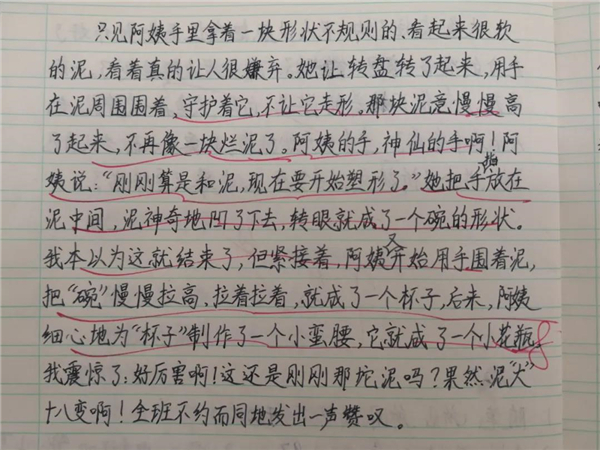 只见阿姨手里拿着一块形状不规则的、看起来很软
的泥，看着真的让人很嫌弃。她让转盘转了起来，用手
在泥周围围着，守护着它，不让它走形。那块泥竟慢慢高
了起来，不再像一块烂泥了。阿姨的手，神仙的手啊！阿
姨说：“刚刚算是和泥，现在要开始塑形了。”她把手指放在
泥中间，泥神奇地凹了下去，转眼就成了一个碗的形状。
我本以为这就结束了，但紧接着，阿姨又开始用手围着泥，
把“碗”慢慢拉高、拉着拉着，就成了一个杯子，后来，阿姨
细心地为“杯子”制作了一个小蛮腰，它就成了一个小花瓶。
我震惊了：好厉害啊！这还是刚刚那坨泥吗？果然泥“大”
十八变啊！全班不约而同地发出一声赞叹。